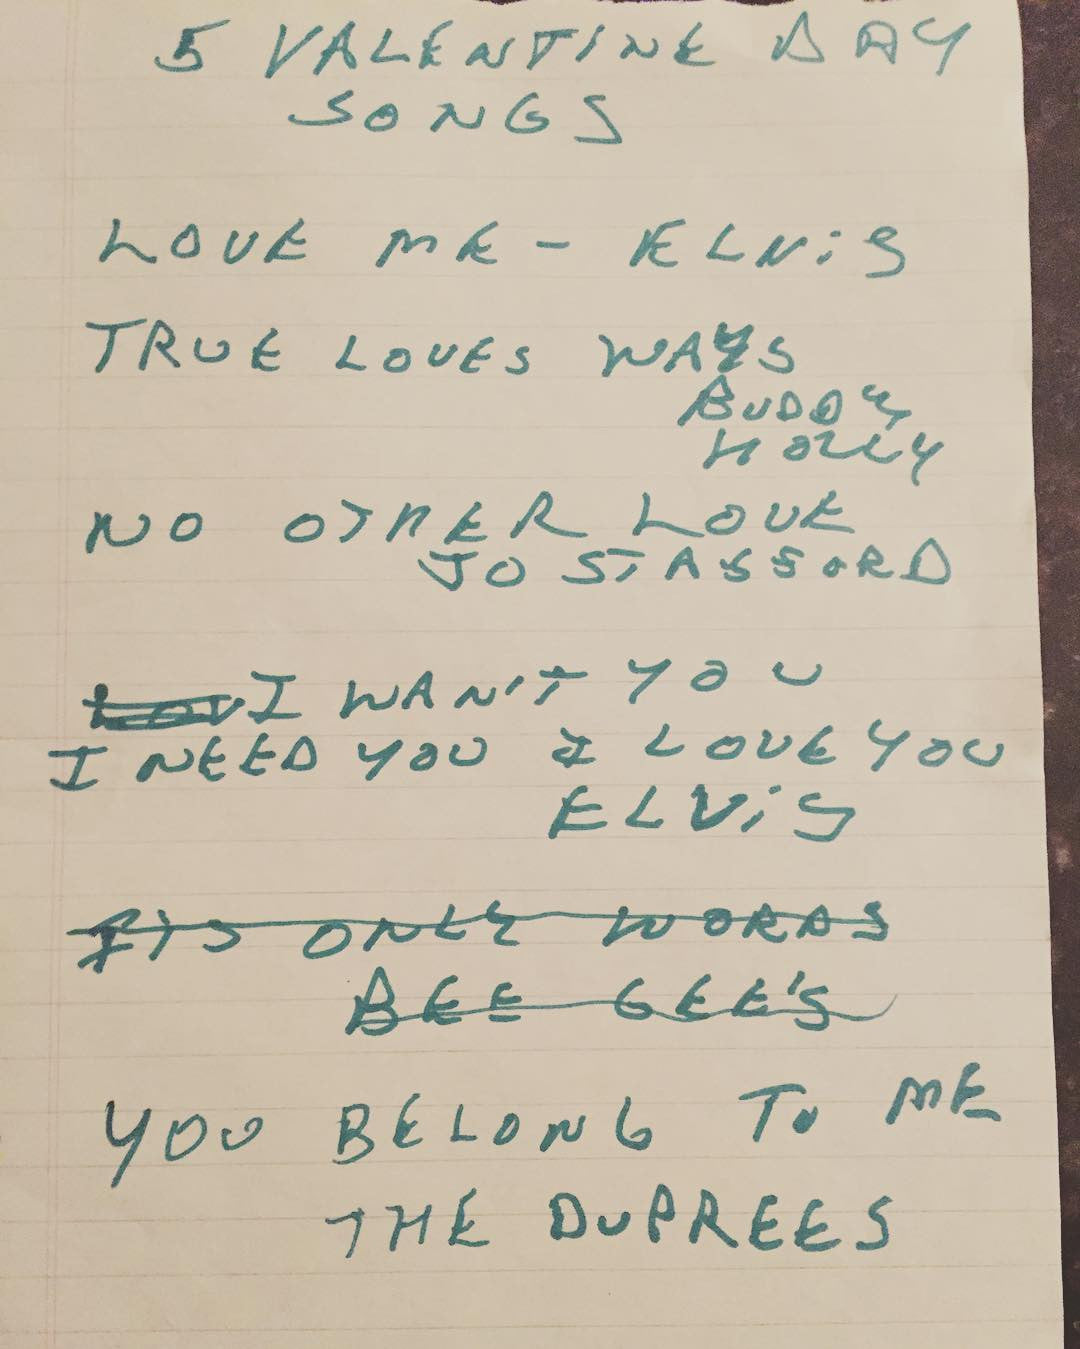 5 VALENTINE DAY
SONGS
LOVE ME - ELViS
TRUE LOVES WAYS
BUDDY
HOLLY
NO OTHER LOVE
JO STASSORD
I WAN'T YOU
I NEED YOU & LOVE YOU
ELViS
ITS ONLY WORDS
BEE GEE'S
YOU BELONG To ME
THE DuPREES